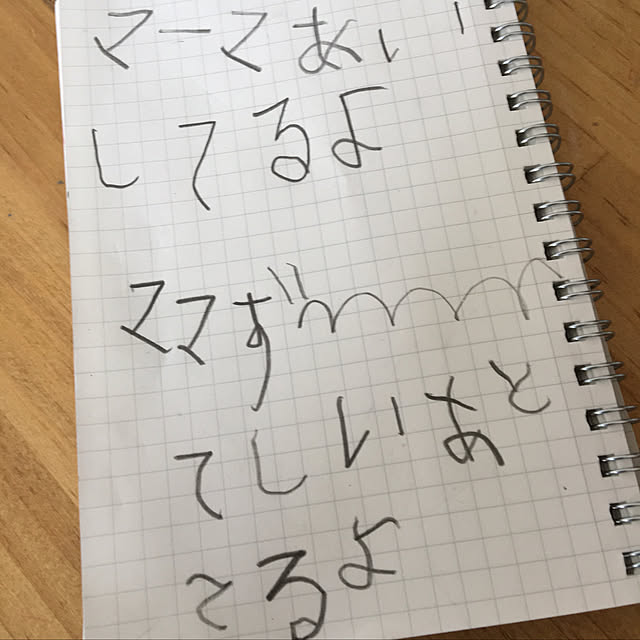 マーマあい
してるよ
ママず〰〰
てしいあと
てるよ